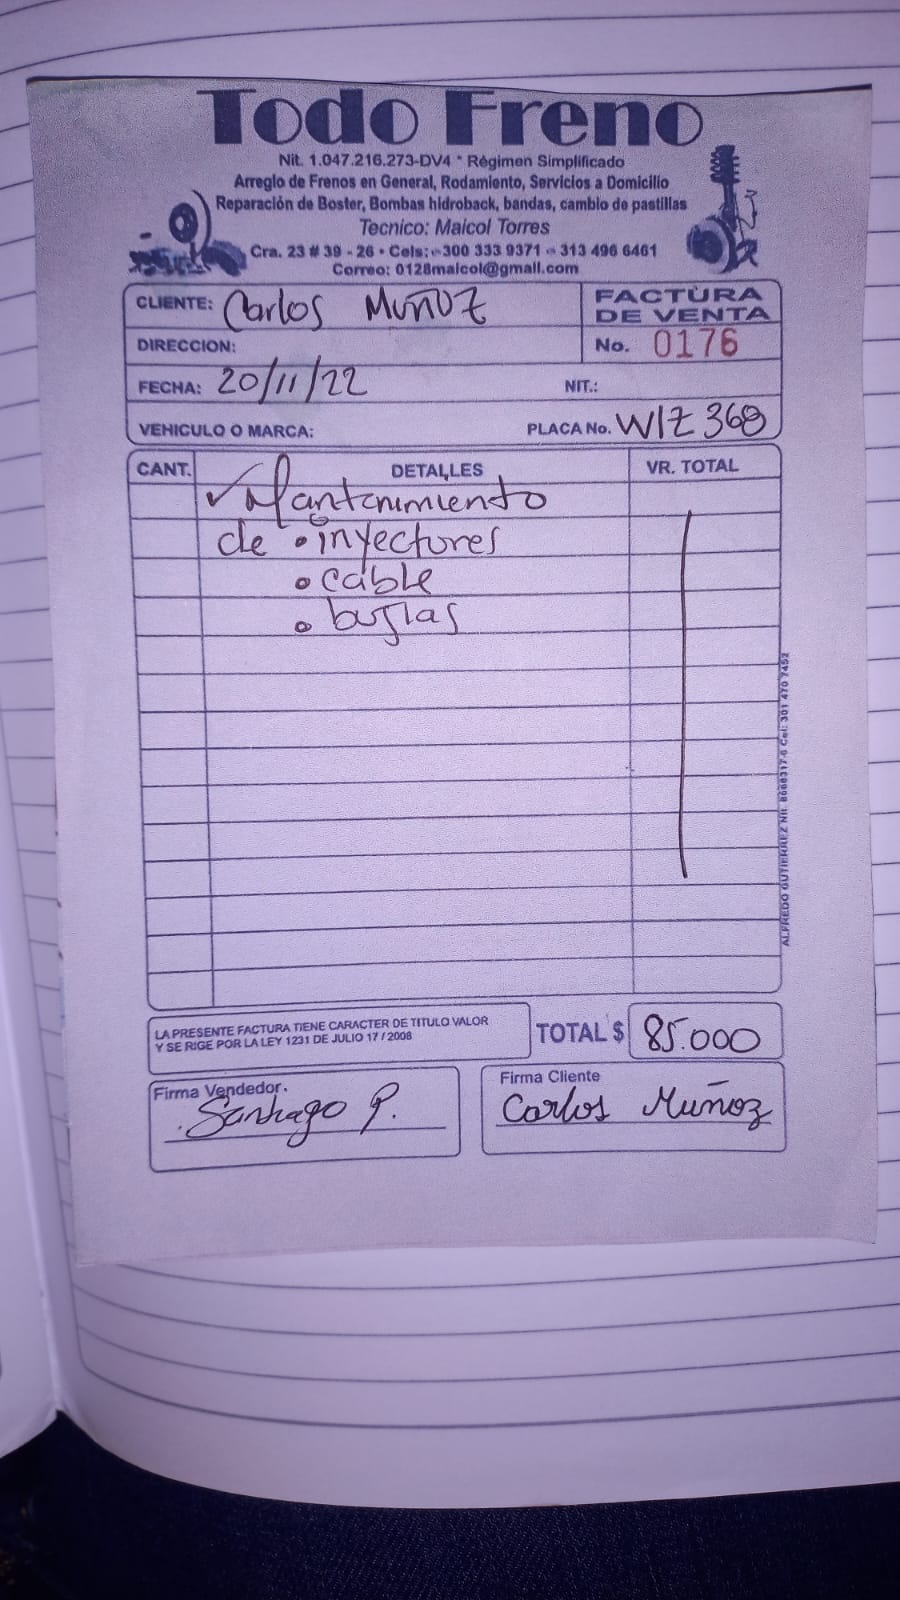 Todo Freno
Nit. 1.047.216.273-DV4 * Régimen Simplificado
Arreglo de Frenos en General, Rodamiento, Servicios a Domicilio
Reparación de Boster, Bombas hidroback, bandas, cambio de pastillas
Tecnico: Maicol Torres
Cra. 23 # 39 - 26 • Cels: 300 333 9371 - 313 496 6461
Correo: 0128maicol@gmail.com
CLIENTE: Carlos Muñoz
FACTURA
DE VENTA
DIRECCION:
No. 0176
FECHA: 20/11/22 NIT.:
VEHICULO O MARCA: PLACA No. WIZ 368
CANT. DETALLES VR. TOTAL
✓ Mantenimiento
de • inyectores
• cable
• bujias
ALFREDO GUTIERREZ Nit: 8668317-6 Cel: 301 470 7452
LA PRESENTE FACTURA TIENE CARACTER DE TITULO VALOR
Y SE RIGE POR LA LEY 1231 DE JULIO 17 / 2008
TOTAL $ 85.000
Firma Vendedor.
Santiago P.
Firma Cliente
Carlos Muñoz